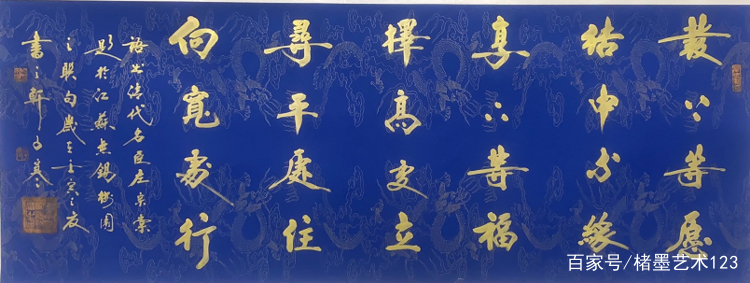 發上等愿
结中等緣
享下等福
擇高处立
尋平處住
向寬處行
語出清代名臣左宗棠
題於江蘇無錫梅園
之聯句歲在壬寅之夜
書之軒
百家号/楮墨艺术123